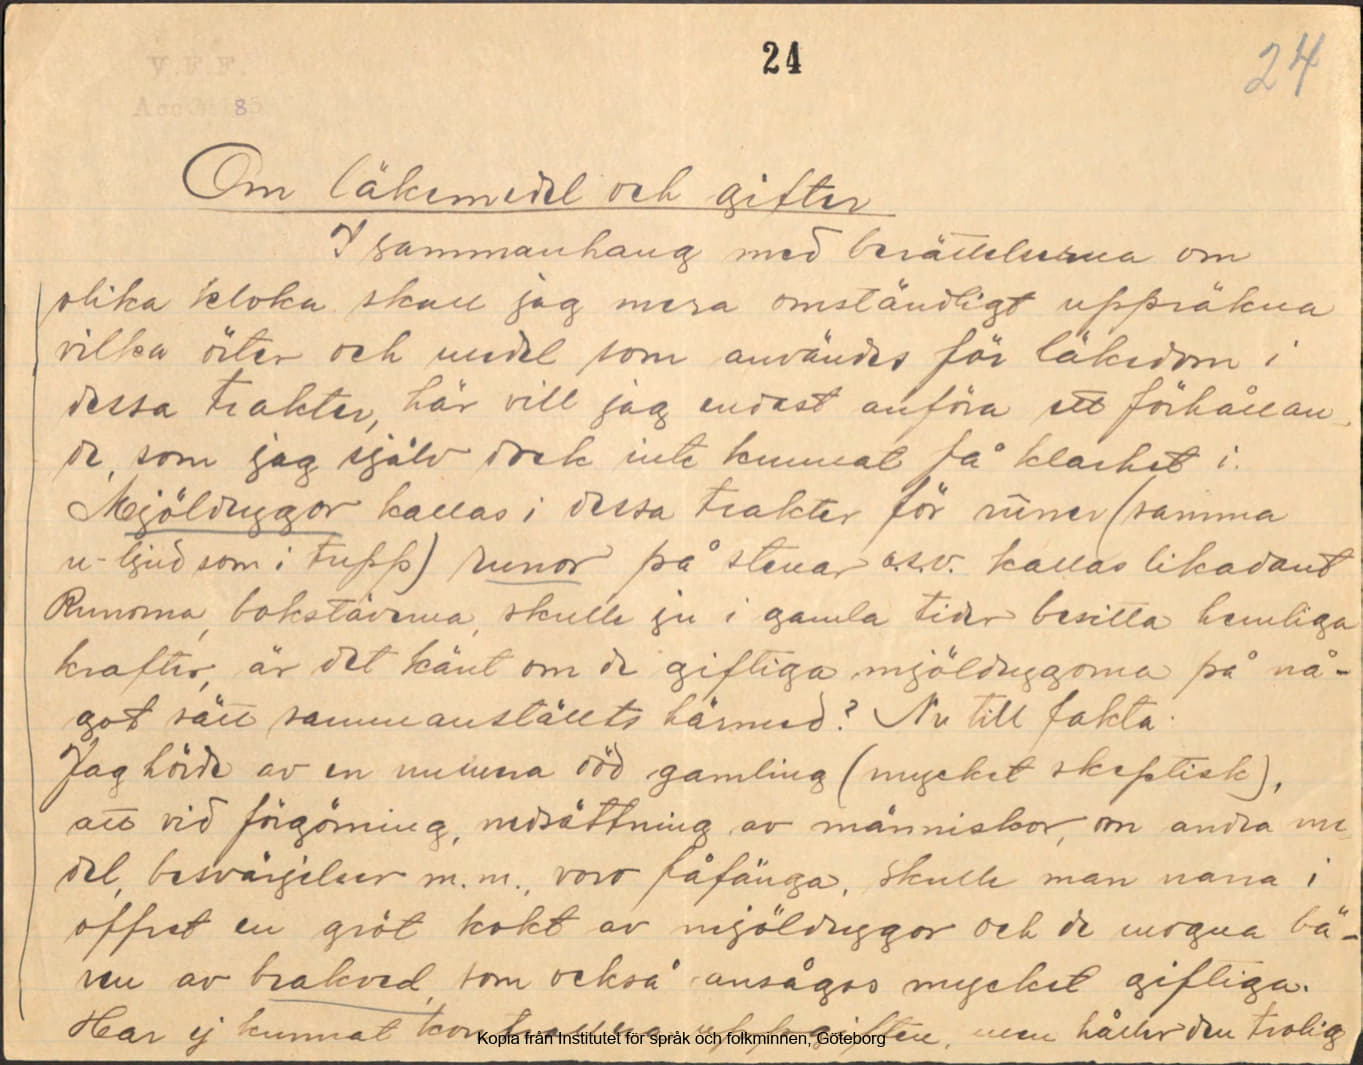 24
24
V.F.F.
Om läkemedel och gifter
I sammanhang med berättelserna om
olika kloka skall jag mera omständligt uppräkna
vilka örter och medel som användes för läkedom i
dessa trakter, här vill jag endast anföra ett förhållan-
de, som jag själv dock inte kunnat få klarhet i.
Mjöldryggor kallas i dessa trakter för runer (samma
u-ljud som i tupp) runor på stenar o.s.v. kallas likadant
Runorna, bokstäverna, skulle ju i gamla tider besitta hemliga
krafter, är det känt om de giftiga mjöldryggorna på nå-
got sätt sammanställts härmed? Nu till fakta:
Jag hörde av en numera död gamling (mycket skeptisk),
att vid förgörning, nedsättning av människor, om andra me-
del, besvärjelser m.m., voro fåfänga, skulle man narra i
offret en gröt kokt av mjöldryggor och de mogna bä-
ren av brakved, som också ansågos mycket giftiga.
Har ej kunnat kontrollera uppgiften, men håller den trolig
Kopia från Institutet för språk och folkminnen, Göteborg